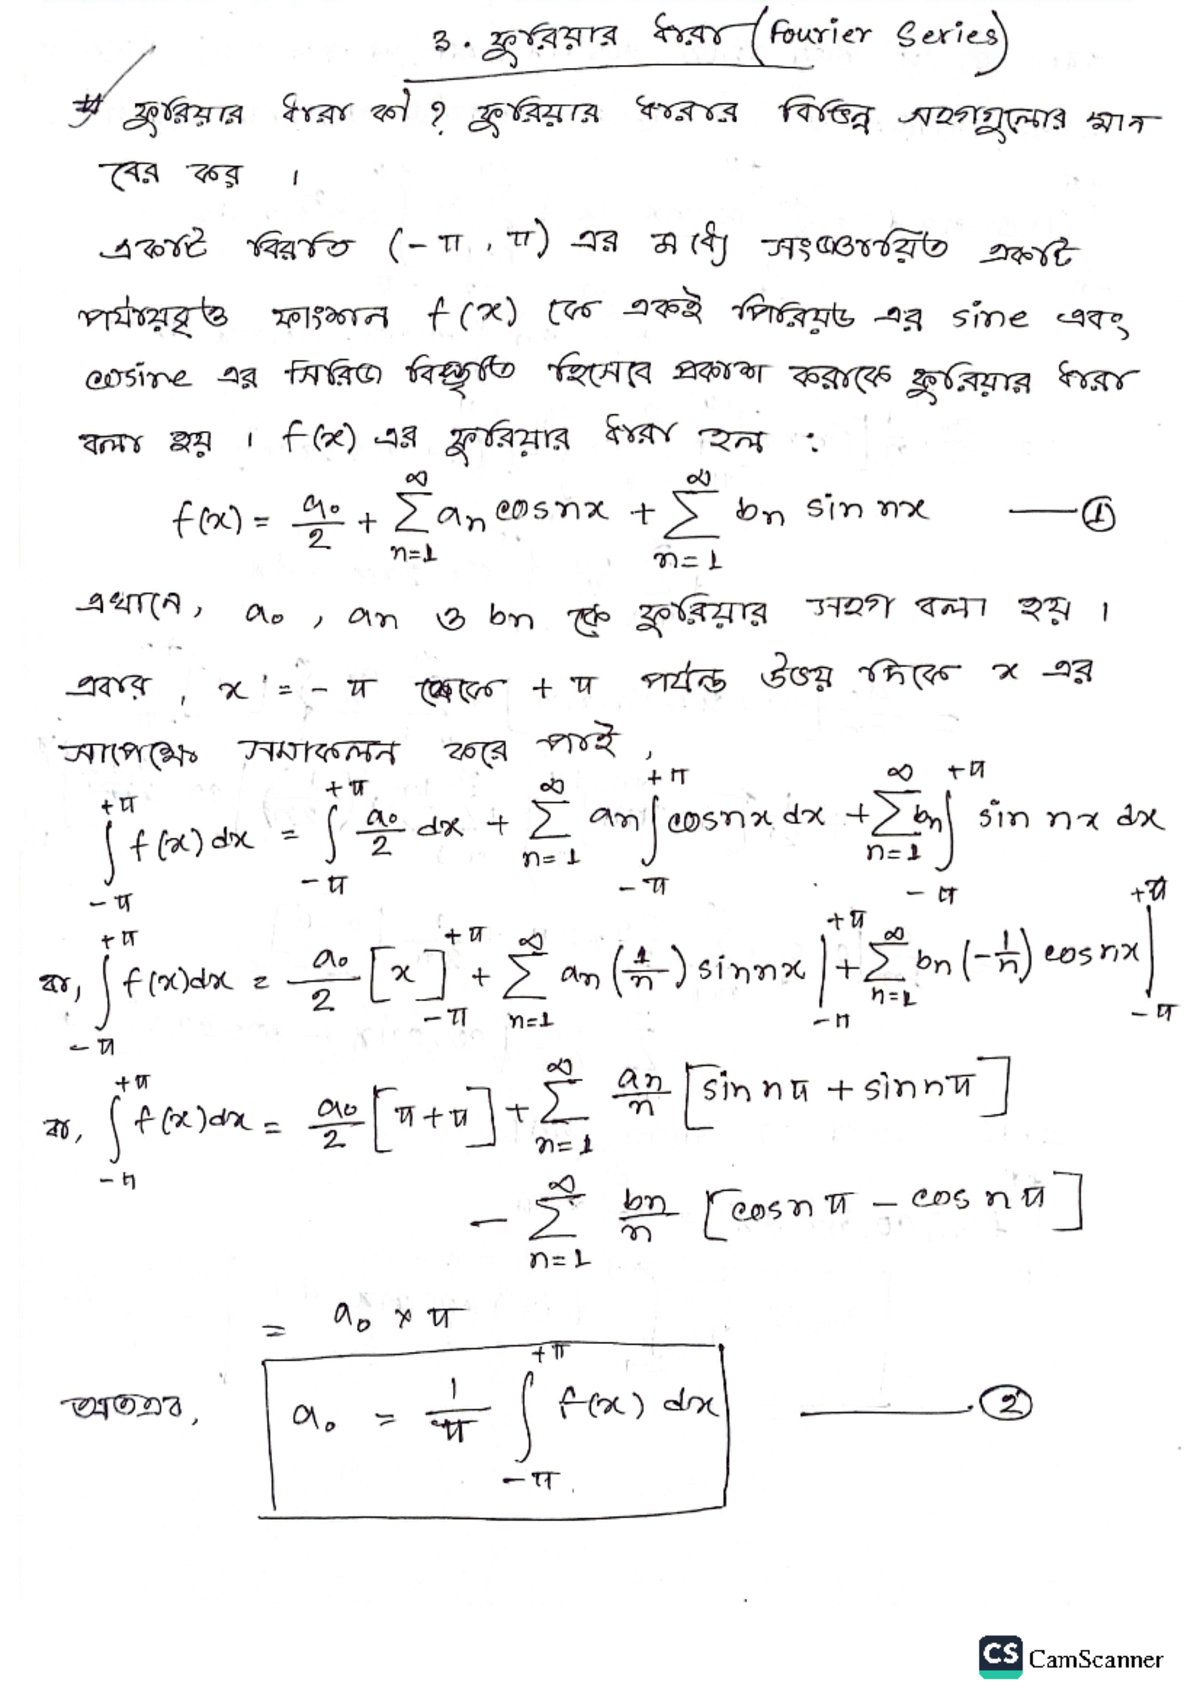 3. ফুরিয়ার ধারা (Fourier Series)
# ফুরিয়ার ধারা কী ? ফুরিয়ার ধারার বিভিন্ন সহগগুলোর মান
বের কর ।
একটি বিরতি (-π, π) এর মধ্যে সংজ্ঞায়িত একটি
পর্যায়বৃত্ত ফাংশন f(x) কে একই পিরিয়ড এর sine এবং
cosine এর সিরিজ বিস্তৃতি হিসেবে প্রকাশ করাকে ফুরিয়ার ধারা
বলা হয় । f(x) এর ফুরিয়ার ধারা হল :
f(x) = a₀/2 + ∑_{n=1}^{∞} aₙ cosnx + ∑_{n=1}^{∞} bₙ sin nx —— ①
এখানে, a₀, aₙ ও bₙ কে ফুরিয়ার সহগ বলা হয় ।
এবার, x = -π থেকে +π পর্যন্ত উভয় দিকে x এর
সাপেক্ষে সমাকলন করে পাই,
∫_{-π}^{+π} f(x) dx = ∫_{-π}^{+π} a₀/2 dx + ∑_{n=1}^{∞} aₙ ∫_{-π}^{+π} cosnx dx + ∑_{n=1}^{∞} bₙ ∫_{-π}^{+π} sin nx dx
বা, ∫_{-π}^{+π} f(x)dx = a₀/2 [x]_{-π}^{+π} + ∑_{n=1}^{∞} aₙ (1/n) sinnx |_{-π}^{+π} + ∑_{n=1}^{∞} bₙ (-1/n) cosnx |_{-π}^{+π}
বা, ∫_{-π}^{+π} f(x)dx = a₀/2 [π+π] + ∑_{n=1}^{∞} aₙ/n [sin nπ + sin nπ]
- ∑_{n=1}^{∞} bₙ/n [cosnπ - cosnπ]
= a₀ × π
অতএব, a₀ = 1/π ∫_{-π}^{+π} f(x) dx —— ②
CS CamScanner